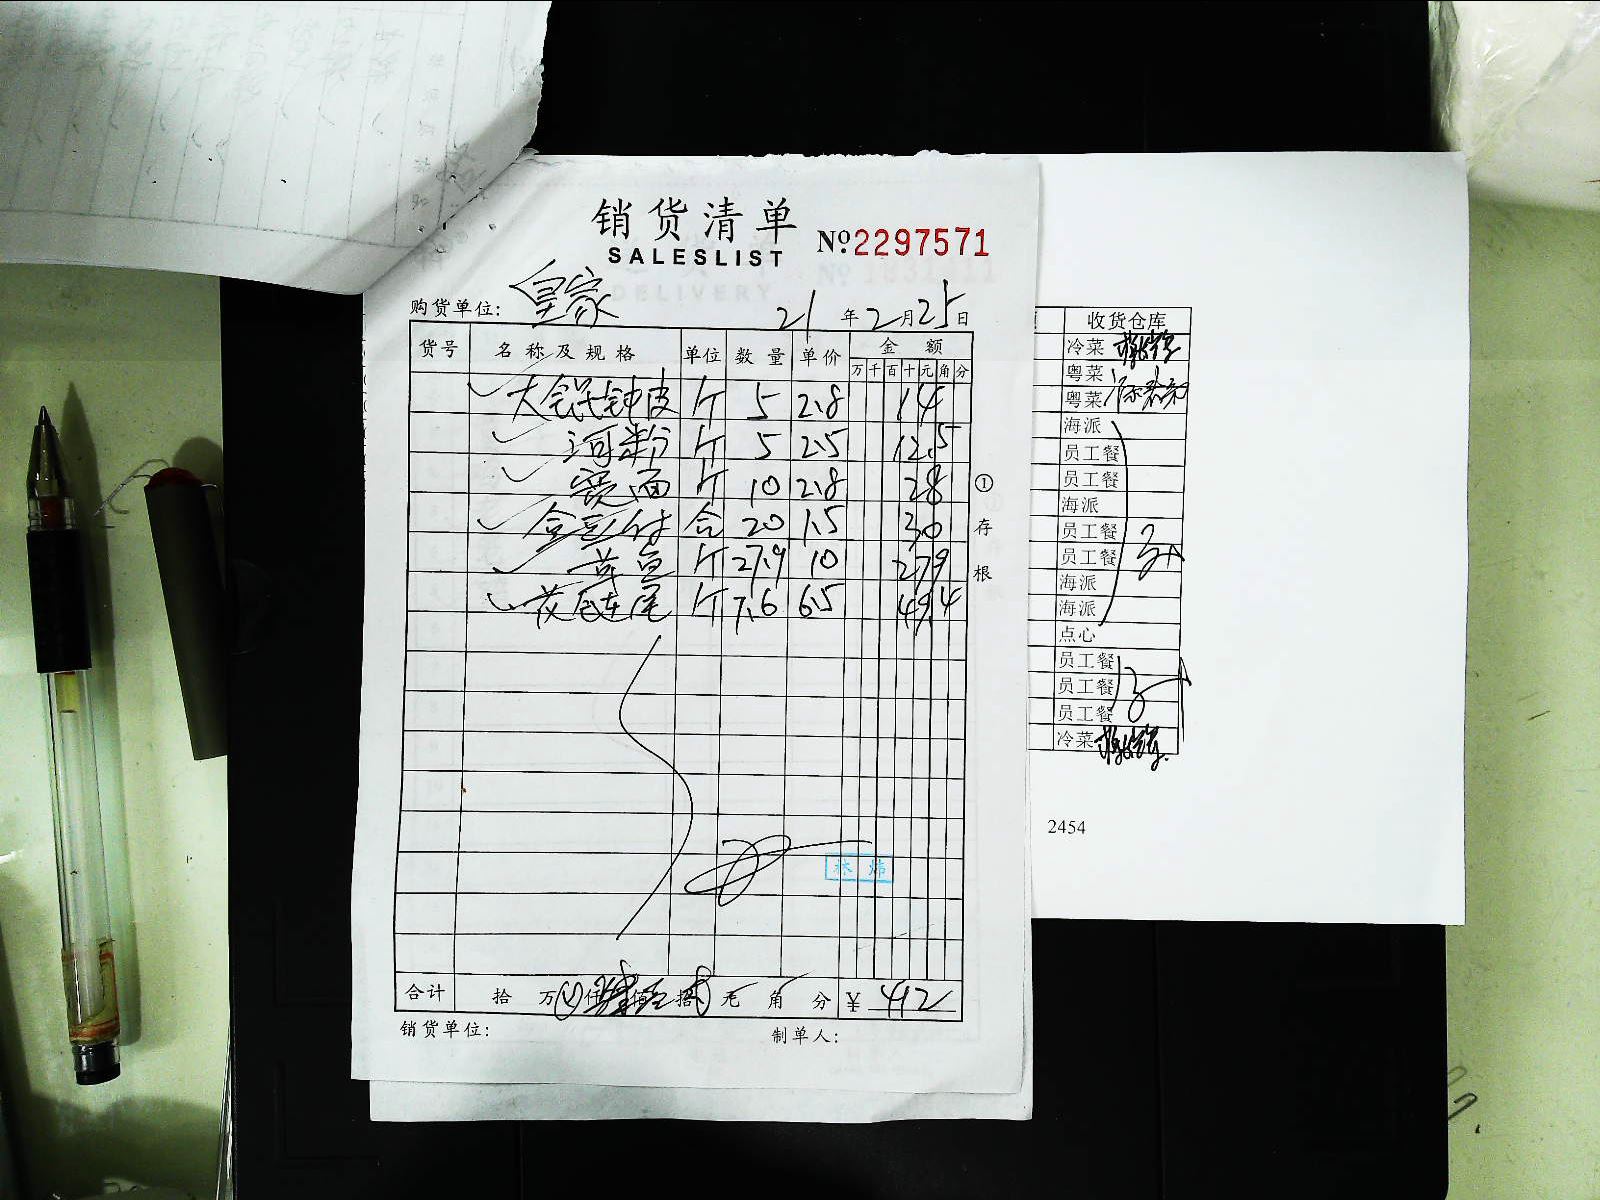 销货清单
SALESLIST
№2297571
购货单位: 皇家
21年2月25日
货号 名称及规格 单位 数量 单价 金额
万 千 百 十 元 角 分
大馄饨皮 斤 5 2.8 14
河粉 斤 5 2.5 12.5
面 斤 10 2.8 28
盒豆付 合 20 1.5 30
斤 27.9 10 279
花鲢尾 斤 7.6 6.5 49.4
①存根
林炜
合计 拾 万 仟 佰 拾 元 角 分 ¥ 412
销货单位:
制单人:
收货仓库
冷菜
粤菜
粤菜
海派
员工餐
员工餐
海派
员工餐
员工餐
海派
海派
点心
员工餐
员工餐
员工餐
冷菜
2454